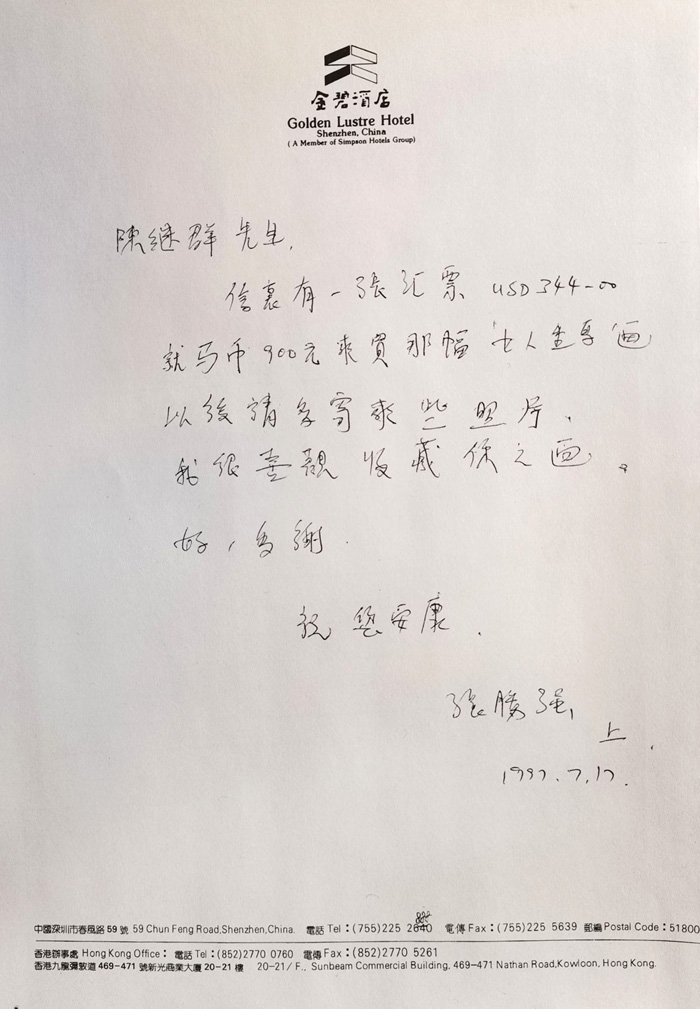 金碧酒店
Golden Lustre Hotel
Shenzhen, China
( A Member of Simpson Hotels Group)
陳继群 先生,
信裏有一張汇票 USD 344-00
就马币 900元 來買那幅 "女人
以後請多寄來些照片.
我很喜觀收藏你之画。
好,多謝.
祝您安康.
張勝强,
上.
1997.7.17.
中國深圳市春風路 59 號 59 Chun Feng Road,Shenzhen,China. 電話 Tel : (755)225 電傳 Fax : (755)225 5639 郵編 Postal Code : 51800
香港辦事處 Hong Kong Office : 電話 Tel : (852)2770 0760 電傳 Fax : (852)2770 5261
香港九龍彌敦道 469-471 號新光商業大廈 20-21 樓 20-21/ F., Sunbeam Commercial Building, 469-471 Nathan Road,Kowloon, Hong Kong.